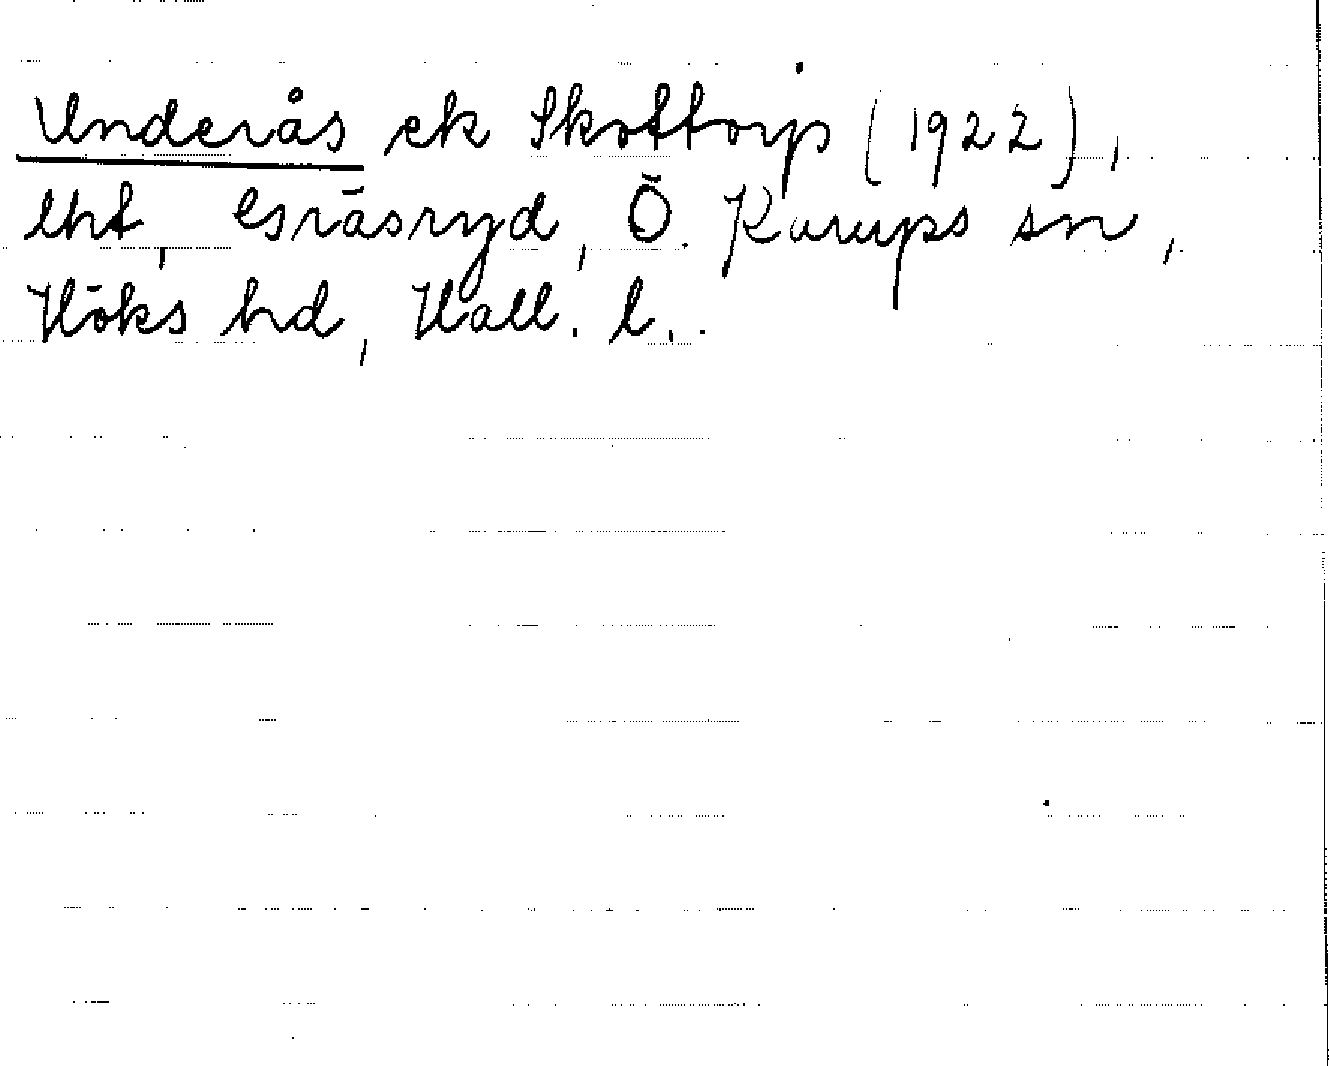 Underås ek Skottorp (1922),
lht, Gräsryd, Ö. Karups sn,
Höks hd, Hall. l..